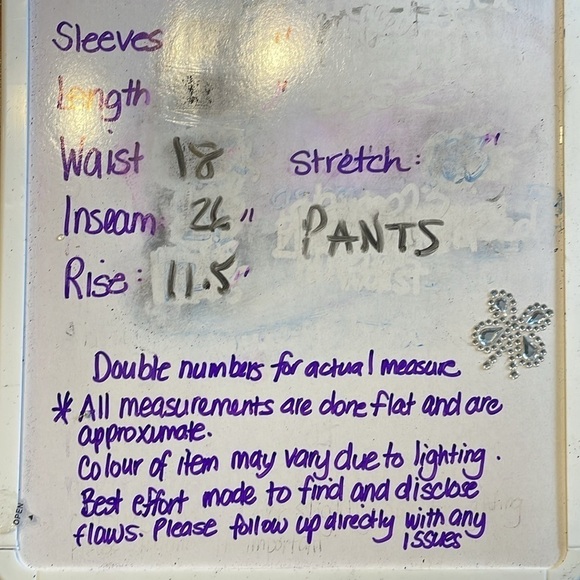 Sleeves "
Length "
Waist 18 Stretch: "
Inseam: 26" PANTS
Rise: 11.5"
Double numbers for actual measure
* All measurements are done flat and are
approxumate.
Colour of item may vary due to lighting.
Best effort made to find and disclose
flaws. Please follow up directly with any
issues
OPEN